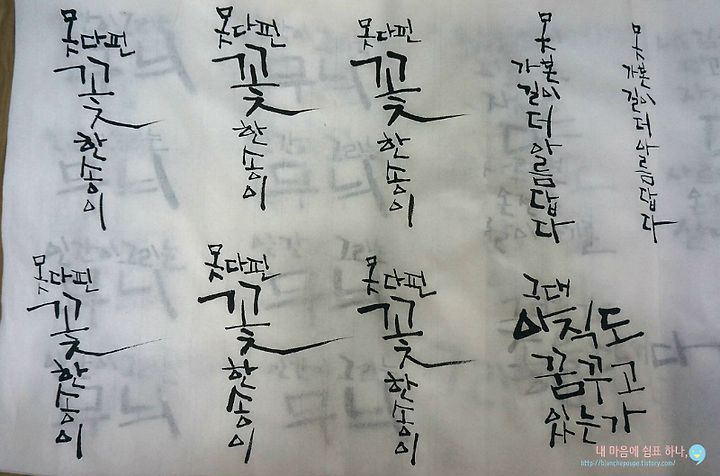 못다핀
꽃
한송이
못다핀
꽃
한송이
못다핀
꽃
한송이
못
가본
길이
더
아름답다
못
가본
길이
더
아름답다
못다핀
꽃
한송이
못다핀
꽃
한송이
못다핀
꽃
한송이
그대
아직도
꿈꾸고
있는가
내 마음에 쉼표 하나,
http://blanchepoupe.tistory.com/